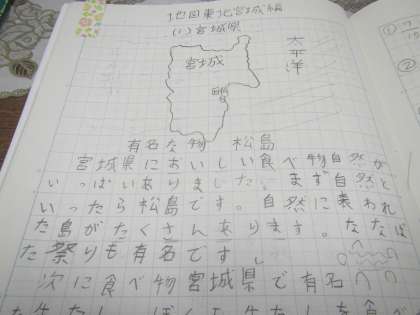 地図東北宮城編
(1)宮城県
宮城
太平洋
有名な物 松島
宮城県においしい食べ物自然が
いっぱいありました。まず自然と
いったら松島です。自然に表われ
た島がたくさんあります。たなば
た祭りも有名です。
次に食べ物宮城県で有名
①
②